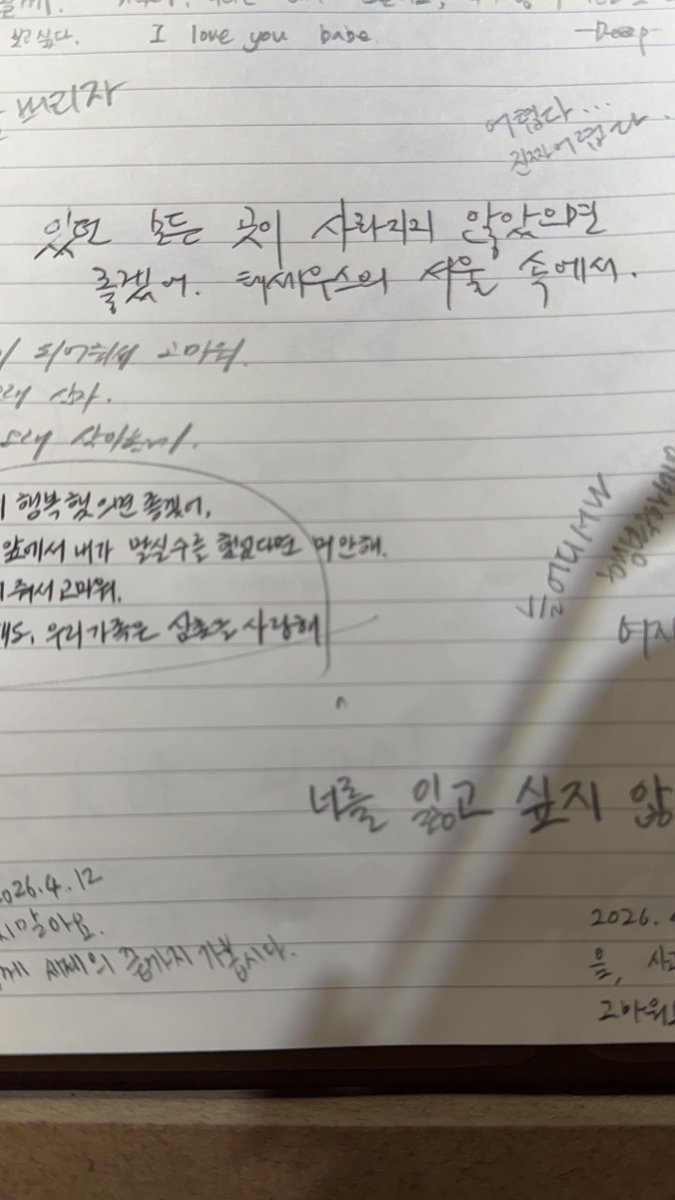 보고싶다. I love you babe. -Deep-
쓰리자
어렵다...
진짜 어렵다.
있던 모든 곳이 사라지지 않았으면
좋겠어. 테세우스의 서울 속에서.
되어줘서 고마워.
살자.
행복했으면 좋겠어,
앞에서 내가 말실수를 했다면 미안해.
줘서 고마워.
우리가족은 삼촌을 사랑해
너를 잃고 싶지 않
2026.4.12
지말아요.
께 세계의 끝까지 가봅시다.
2026.
음,
고마워요